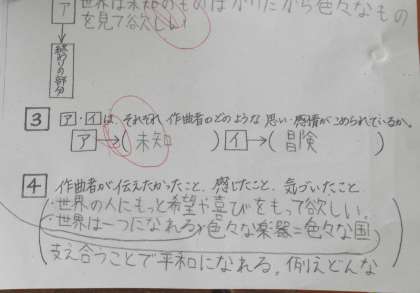 ア 世界は未知のものばかりだから色々なもの
を見て欲しい
終わりの部分
3 ア・イは、それぞれ作曲者のどのような思い・感情がこめられているか。
ア→(未知) イ→(冒険)
4 作曲者が伝えたかったこと、感じたこと、気づいたこと
・世界の人にもっと希望や喜びをもって欲しい。
・世界は一つになれる 色々な楽器=色々な国
支え合うことで平和になれる。例えどんな